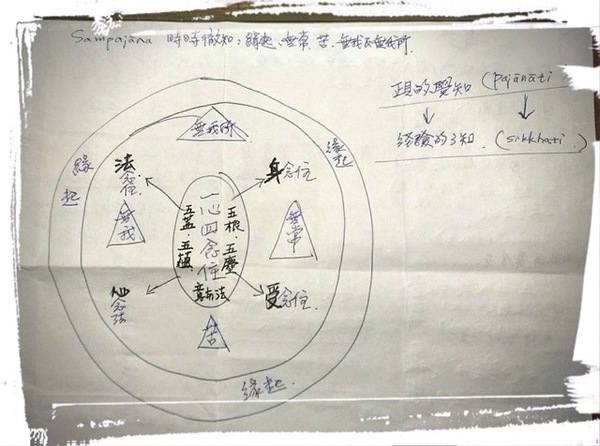 Sampajāna 時時徹知：緣起、無常、苦、無我及無我所.
正見的覺知 (pajānāti
經驗的了知. (sikkhati.
無我所
緣起
緣起
法念住.
身念住
無我
一心四念住
五蓋.五蘊.
五根.五塵
意與法
無常
心念住
受念住.
苦
緣起.